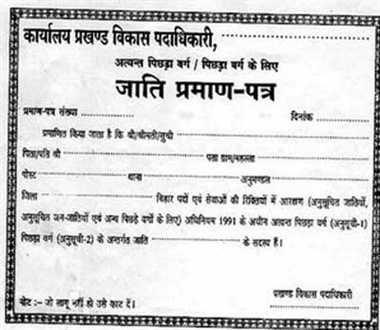 कार्यालय प्रखण्ड विकास पदाधिकारी, ............
अत्यन्त पिछड़ा वर्ग / पिछड़ा वर्ग के लिए
जाति प्रमाण-पत्र
प्रमाण-पत्र संख्या ............ दिनांक ............
प्रमाणित किया जाता है कि श्री/श्रीमती/सुश्री ............
पिता/पति श्री ............ पता ग्राम/मुहल्ला ............
पोस्ट ............ थाना ............ अनुमण्डल ............
जिला ............ बिहार पदों एवं सेवाओं की रिक्तियों में आरक्षण (अनुसूचित जातियों,
अनुसूचित जन-जातियों एवं अन्य पिछड़े वर्गों के लिए) अधिनियम 1991 के अधीन अत्यन्त पिछड़ा वर्ग (अनुसूची-1)
पिछड़ा वर्ग (अनुसूची-2) के अन्तर्गत जाति ............ के सदस्य हैं।
प्रखण्ड विकास पदाधिकारी
नोट :- जो लागू नहीं हो उसे काट दें।